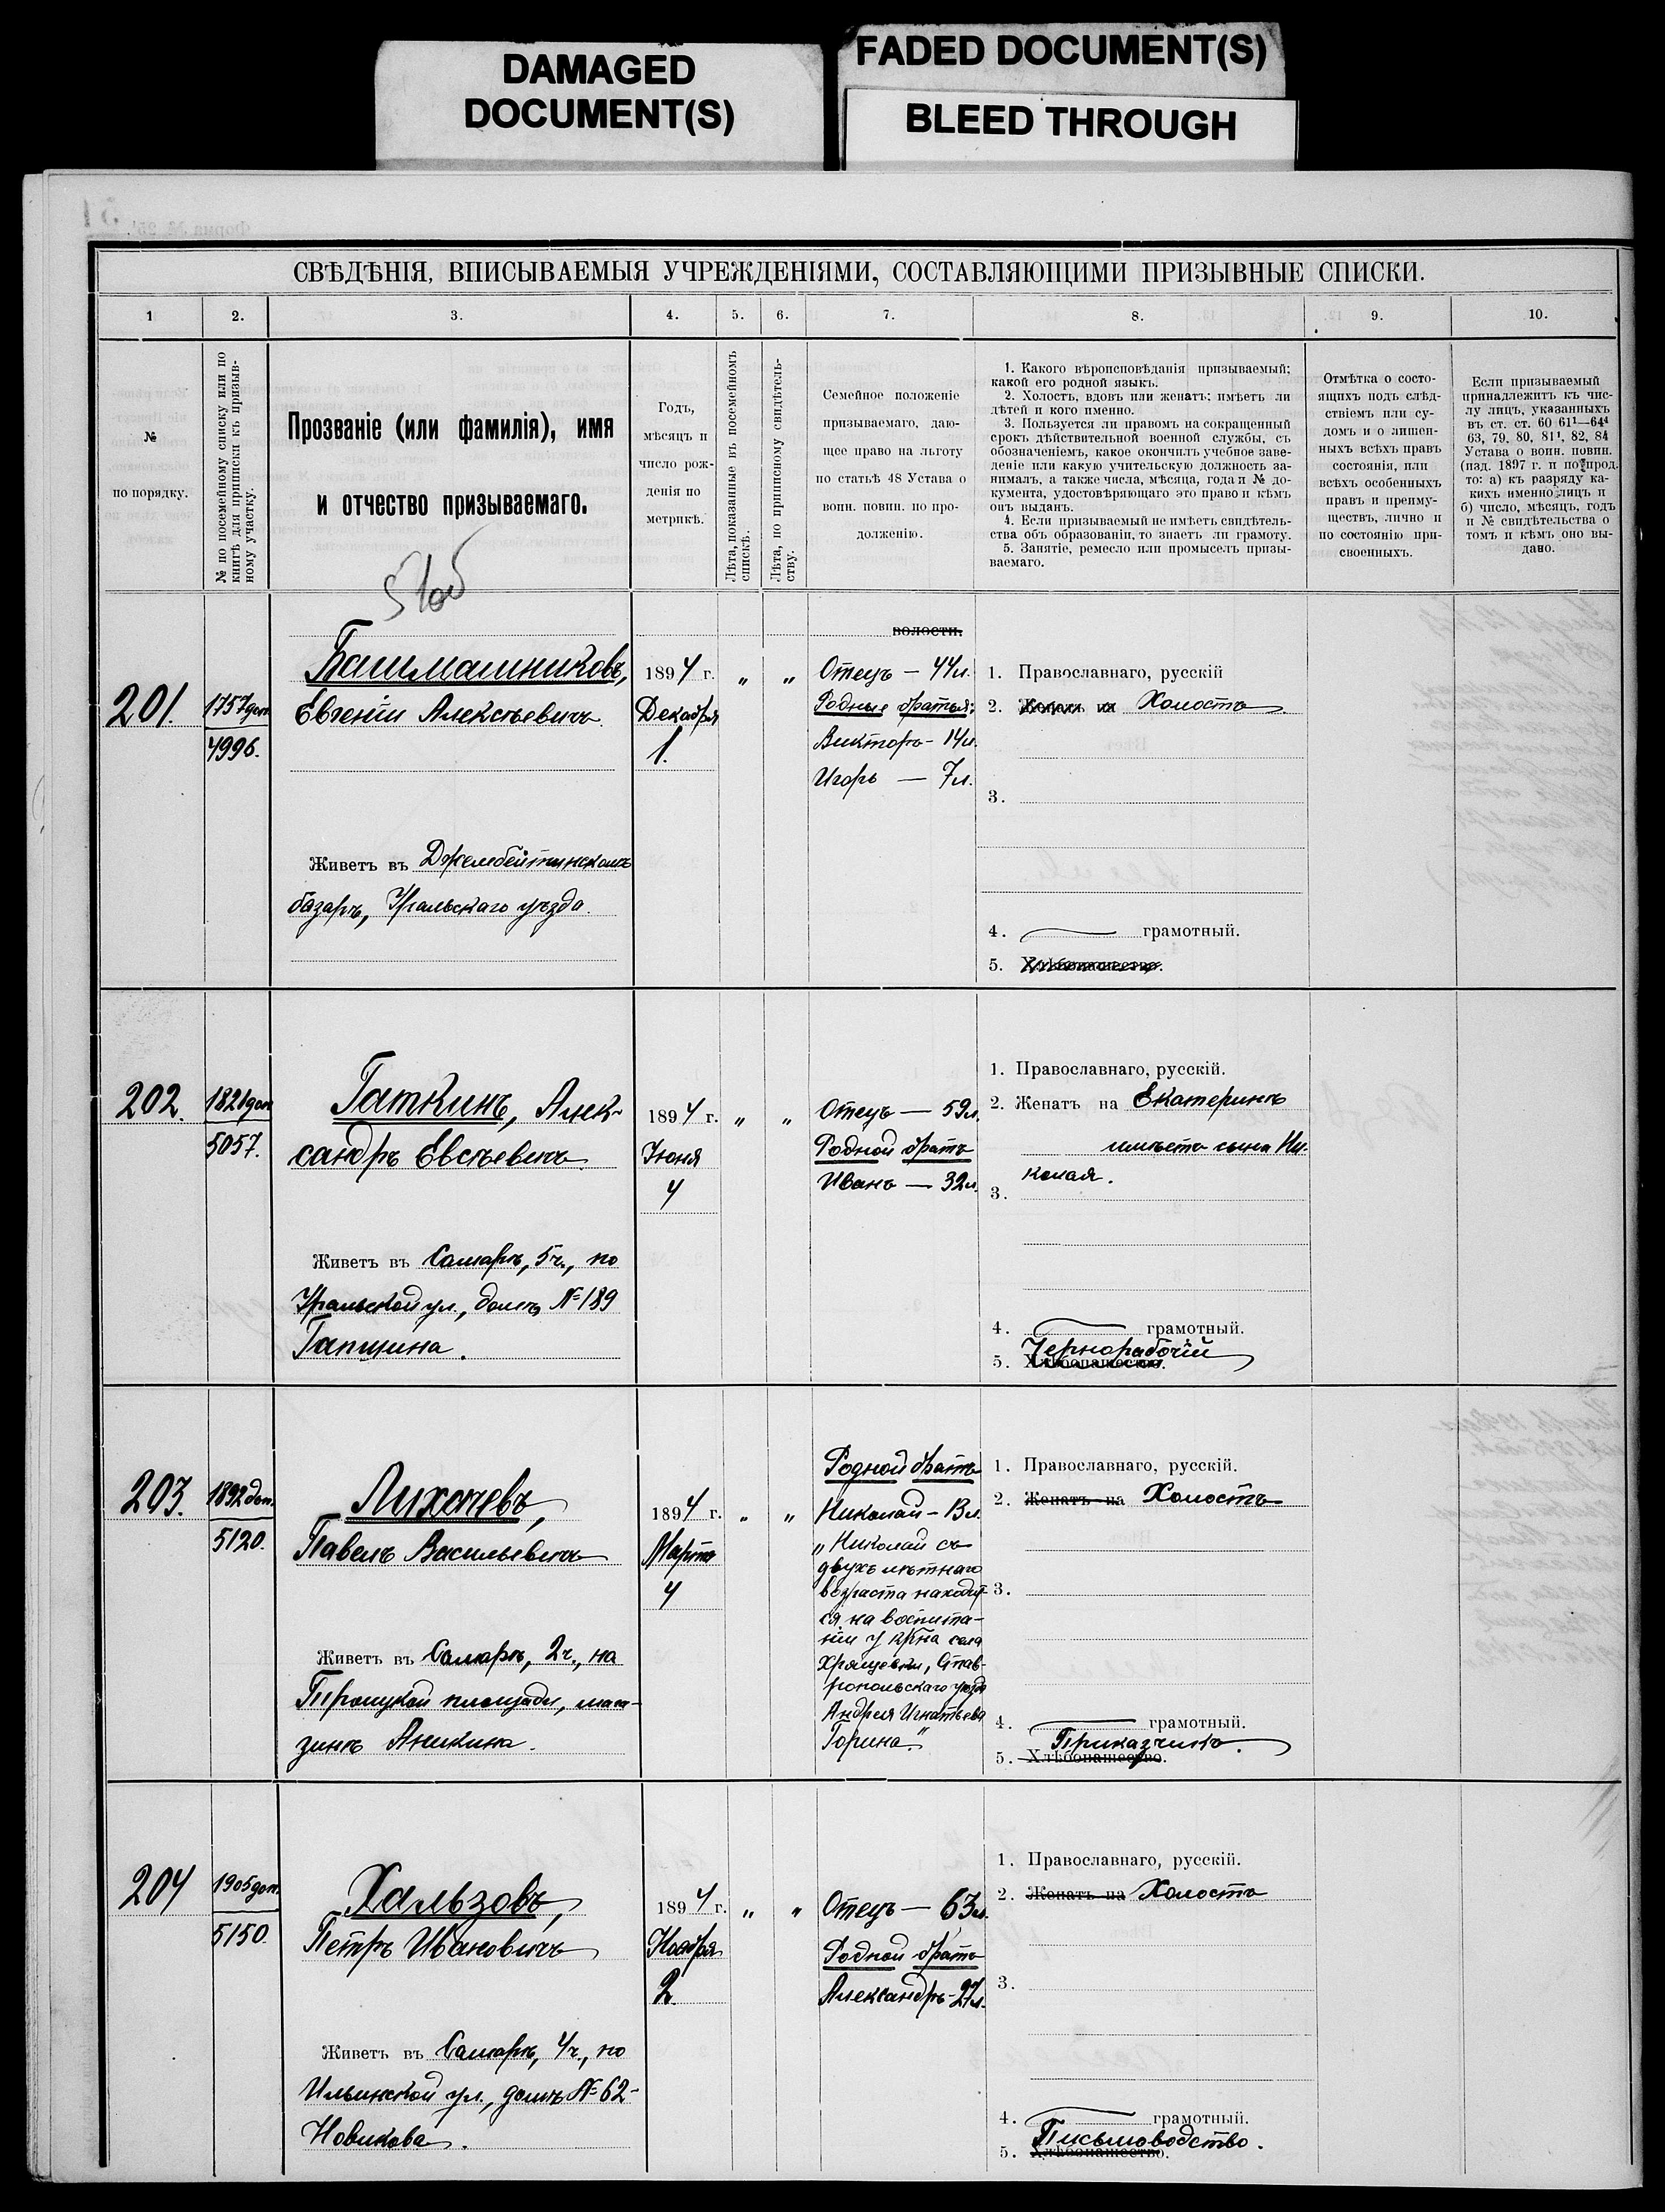 DAMAGED
DOCUMENT(S)
FADED DOCUMENT(S)
BLEED THROUGH
СВѢДѢНІЯ, ВПИСЫВАЕМЫЯ УЧРЕЖДЕНІЯМИ, СОСТАВЛЯЮЩИМИ ПРИЗЫВНЫЕ СПИСКИ.
1 2. 3. 4. 5. 6. 7. 8. 9. 10.
№
по порядку.
№ по посемейному списку или по
книгѣ для приписки къ призыв-
ному участку.
Прозваніе (или фамилія), имя
и отчество призываемаго.
Годъ,
мѣсяцъ и
число рож-
денія по
метрикѣ.
Лѣта, показанные въ посемейномъ
спискѣ.
Лѣта, по приписному свидѣтель-
ству.
Семейное положеніе
призываемаго, даю-
щее право на льготу
по статьѣ 48 Устава о
воин. повин. по про-
долженію.
1. Какого вѣроисповѣданія призываемый;
какой его родной языкъ.
2. Холостъ, вдовъ или женатъ; имѣетъ ли
дѣтей и кого именно.
3. Пользуется ли правомъ на сокращенный
срокъ дѣйствительной военной службы, съ
обозначеніемъ, какое окончилъ учебное заве-
деніе или какую учительскую должность за-
нималъ, а также числа, мѣсяца, года и № до-
кумента, удостовѣряющаго это право и кѣмъ
онъ выданъ.
4. Если призываемый не имѣетъ свидѣтель-
ства объ образованіи, то знаетъ ли грамоту.
5. Занятіе, ремесло или промыселъ призы-
ваемаго.
Отмѣтка о состо-
ящихъ подъ слѣд-
ствіемъ или су-
домъ и о лишен-
ныхъ всѣхъ правъ
состоянія, или
всѣхъ особенныхъ
правъ и преиму-
ществъ, лично и
по состоянію при-
своенныхъ.
Если призываемый
принадлежитъ къ чис-
лу лицъ, указанныхъ
въ ст. ст. 60 61¹—64⁴
63, 79, 80, 81¹, 82, 84
Устава о воин. повин.
(изд. 1897 г. и по прод.
то: а) къ разряду ка-
кихъ именно лицъ и
б) число, мѣсяцъ, годъ
и № свидѣтельства о
томъ и кѣмъ оно вы-
дано.
201.
1757 доп
4996.
Башмашниковъ,
Евгеній Алексѣевичъ.
Живетъ въ Джембейтинскомъ
базарѣ, Уральскаго уѣзда.
1894 г.
Декабря
1.
" "
волости.
Отецъ — 44 л.
Родные братья:
Викторъ - 14 л.
Игорь — 7 л.
1. Православнаго, русскій
2. Женатъ на Холостъ
3.
4. грамотный.
5. Хлѣбопашество.
202.
1821 доп
5057.
Гаткинъ, Алек-
сандръ Евсѣевичъ
Живетъ въ Самарѣ, 5 ч., по
Уральской ул., домъ № 189
Гапшина.
1894 г.
Іюня
4
" "
Отецъ — 59 л.
Родной братъ
Иванъ — 32 л.
1. Православнаго, русскій.
2. Женатъ на Екатеринѣ
имѣетъ сына Ни-
колая.
3.
4. грамотный.
Чернорабочій
5. Хлѣбопашество.
203.
1892 доп.
5120.
Лихачевъ,
Павелъ Васильевичъ
Живетъ въ Самарѣ, 2 ч., на
Троицкой площади, мага-
зинъ Аникина.
1894 г.
Марта
4
" "
Родной братъ
Николай - 13 л.
"Николай съ
двухъ лѣтняго
возраста находит-
ся на воспита-
ніи у кр-на села
Хрящевки, Став-
ропольскаго уѣзда
Андрея Игнатьева
Горина."
1. Православнаго, русскій.
2. Женатъ на Холостъ
3.
4. грамотный.
Приказчикъ.
5. Хлѣбопашество.
204
1905 доп.
5150.
Хальзовъ,
Петръ Ивановичъ
Живетъ въ Самарѣ, 4 ч., по
Ильинской ул., домъ № 62-
Новикова.
1894 г.
Ноября
2.
" "
Отецъ — 63 л.
Родной братъ
Александръ - 27 л.
1. Православнаго, русскій.
2. Женатъ на Холостъ
3.
4. грамотный.
Письмоводство.
5. Хлѣбопашество.